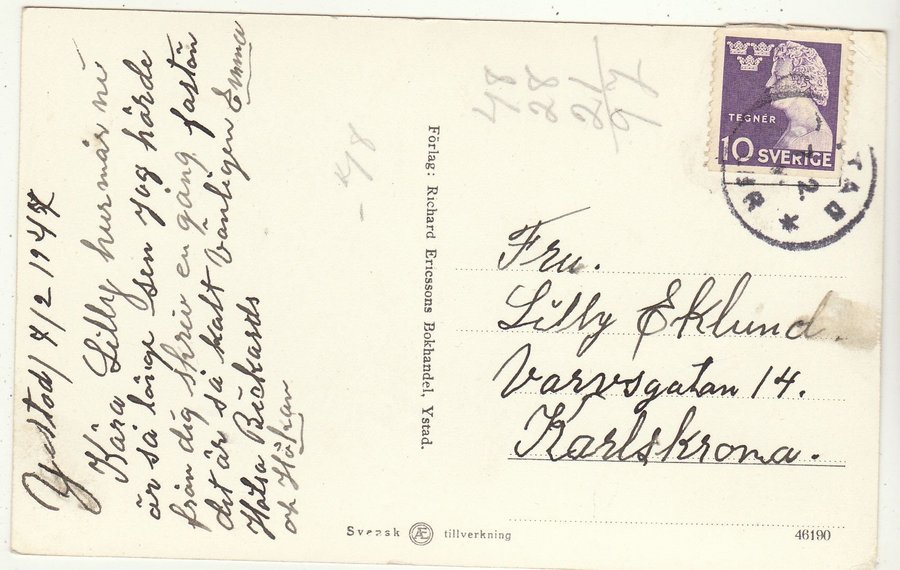 Ystad / 7/2 1947
Kära Lilly hur mår ni
är så länge sen jag hörde
från dig skriv en gång fastän
det är så kalt Vänligen Emma
Halsa Rickards
och Håkan
48
28
21
97
Förlag: Richard Ericssons Bokhandel, Ystad.
TEGNÉR
10 SVERIGE
YSTAD
Fru.
Lilly Eklund.
Varvsgatan 14.
Karlskrona.
Svensk AE tillverkning
46190